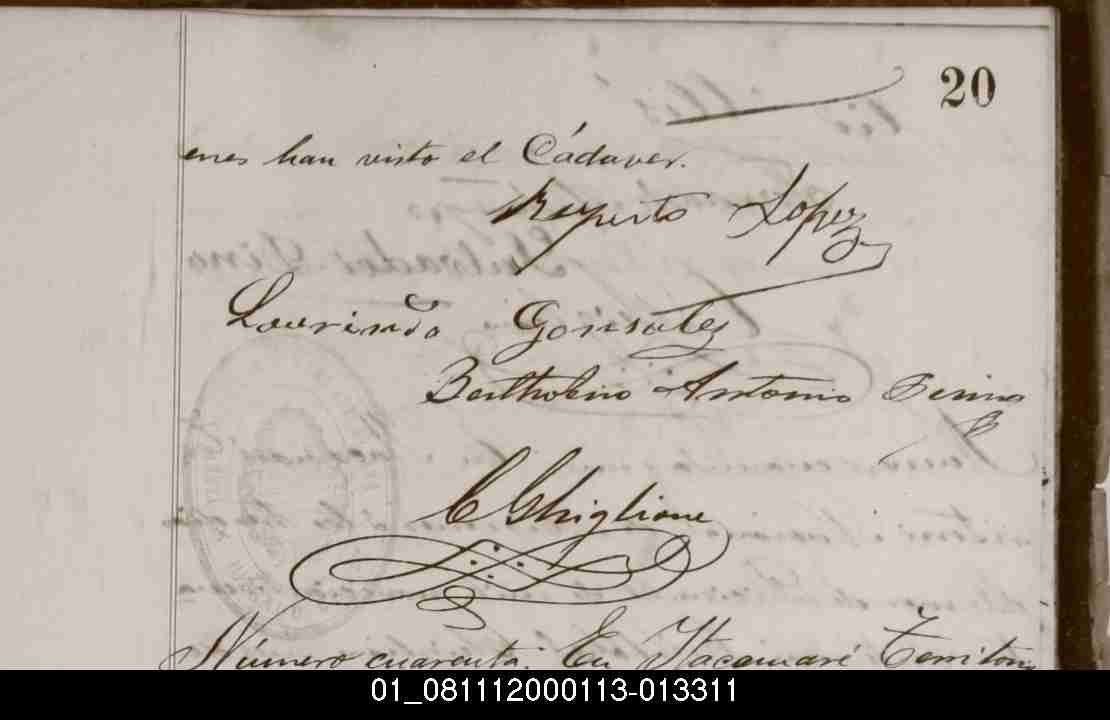 20
enes han visto el Cádaver.
Ruperto Lopez
Laurindo Gonsalez
Bertholino Antonio
C Ghiglione
Número cuarenta. En Itacuaré Territorio
01_081112000113-013311